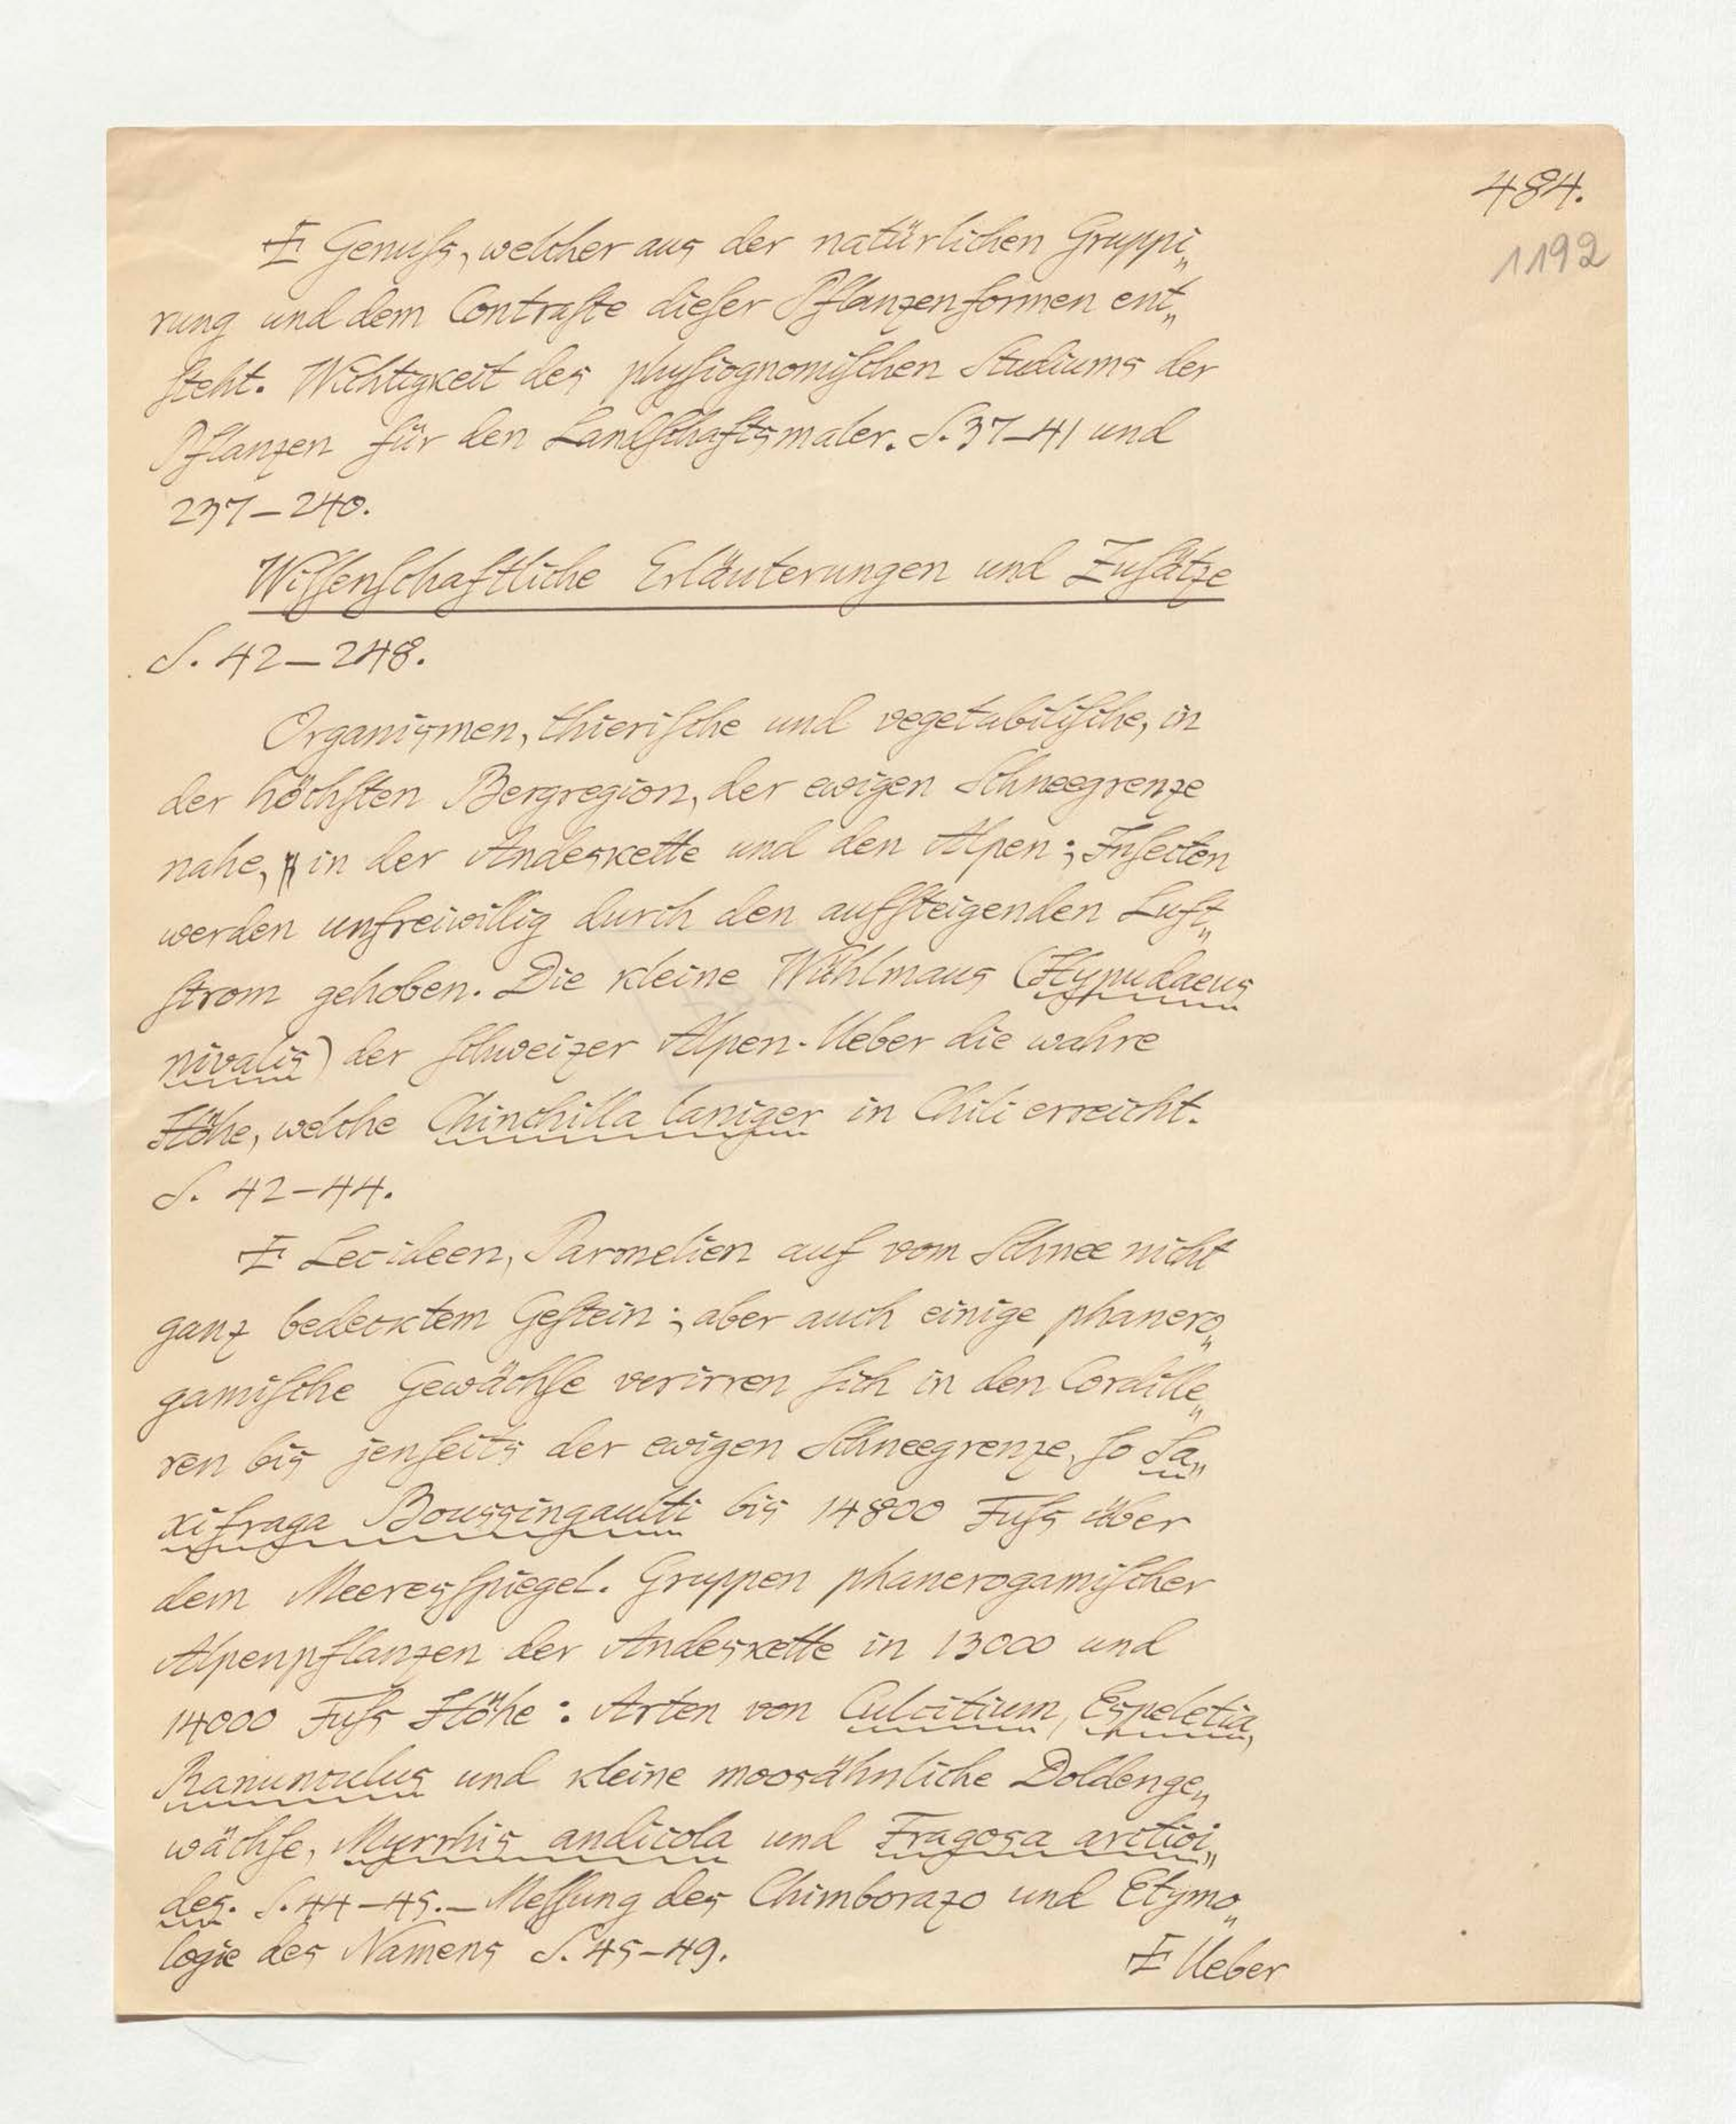 484.
1192
Ŧ Genuſs, welcher aus der natürlichen Gruppi„
rung und dem Contraſte dieſer Pflanzenformen ent„
ſteht. Wichtigkeit des phyſiognomiſchen Studiums der
Pflanzen für den Landſchaftsmaler. S. 37–41 und
237–240.
Wiſſenſchaftliche Erläuterungen und Zuſätze
S. 42–248.
Organismen, thieriſche und vegetabiliſche, in
der höchſten Bergregion, der ewigen Schneegrenze
nahe, in der Andeskette und den Alpen; Inſecten
werden unfreiwillig durch den aufſteigenden Luft„
ſtrom gehoben. Die kleine Wühlmaus (Hypudaeus
nivalis) der ſchweizer Alpen. Ueber die wahre
Höhe, welche Chinchilla laniger in Chili erreicht.
S. 42–44.
Ŧ Lecideen, Parmelien auf vom Schnee nicht
ganz bedecktem Geſtein; aber auch einige phanero„
gamiſche Gewächſe verirren ſich in den Cordille„
ren bis jenſeits der ewigen Schneegrenze, ſo Sa„
xifraga Boussingaulti bis 14800 Fuſs über
dem Meeresſpiegel. Gruppen phanerogamiſcher
Alpenpflanzen der Andeskette in 13000 und
14000 Fuſs Höhe: Arten von Culcitium, Espeletia,
Ranunculus und kleine moosähnliche Doldenge„
wächſe, Myrrhis andicola und Fragosa arctioi„
des. S. 44–45. – Meſſung des Chimborazo und Etymo„
logie des Namens S. 45–49.
Ŧ Ueber